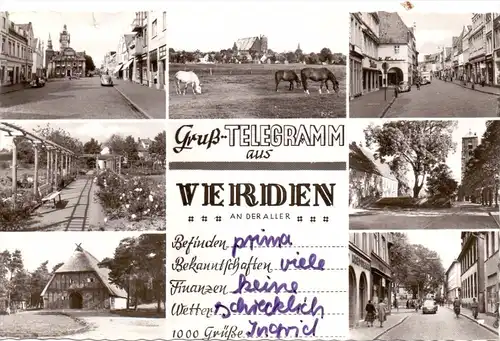 Gruß-TELEGRAMM
aus
VERDEN
AN DER ALLER
Befinden prima
Bekanntschaften viele
Finanzen keine
Wetter schrecklich
1000 Grüße Ingrid